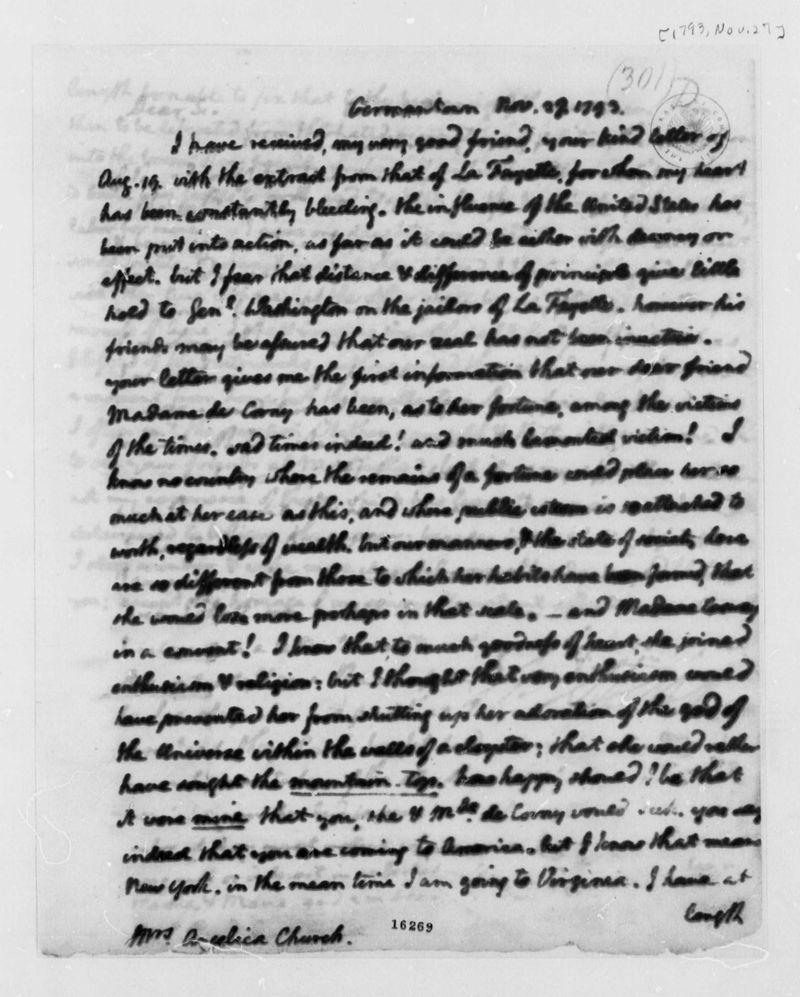 [1793, Nov. 27]
(301)
Germantown Nov. 27. 1793.
I have received, my very good friend, your kind letter of
Aug. 19. with the extract from that of La Fayette, for whom my heart
has been constantly bleeding. the influence of the United States has
been put into action, as far as it could be either with decency or
effect. but I fear that distance & difference of principle give little
hold to Genl. Washington on the jailors of La Fayette. however his
friends may be assured that our zeal has not been inactive.
your letter gives me the first information that our dear friend
Madame de Corny has been, as to her fortune, among the victims
of the times. sad times indeed! and much lamented victim! I
know no country where the remains of a fortune could place her so
much at her ease as this, and where public esteem is so attached to
worth, regardless of wealth. but our manners, & the state of society here
are so different from those to which her habits have been formed, that
she would lose more perhaps in that scale. — and Madame Cosway
in a convent! I knew that to much goodness of heart, she joined
enthusiasm & religion: but I thought that very enthusiasm would
have prevented her from shutting up her adoration of the god of
the Universe within the walls of a cloyster; that she would rather
have sought the mountain-top. how happy should I be that
it were mine that you, she & Mde. de Corny would seek. you say
indeed that you are coming to America. but I know that means
New York. in the mean time I am going to Virginia. I have at
length
Mrs. Angelica Church.
16269